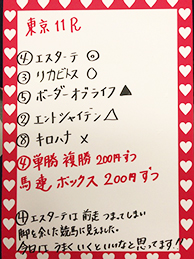 東京 11R
④ エスターテ ◎
③ リカビトス ○
⑤ ボーダーオブライフ ▲
② エントシャイデン △
⑧ キロハナ ×
④ 単勝 複勝 200円ずつ
馬連 ボックス 200円ずつ
④エスターテは 前走 つまってしまい
脚を余した競馬に見えました。
今日は うまくいくといいなと思ってます!!